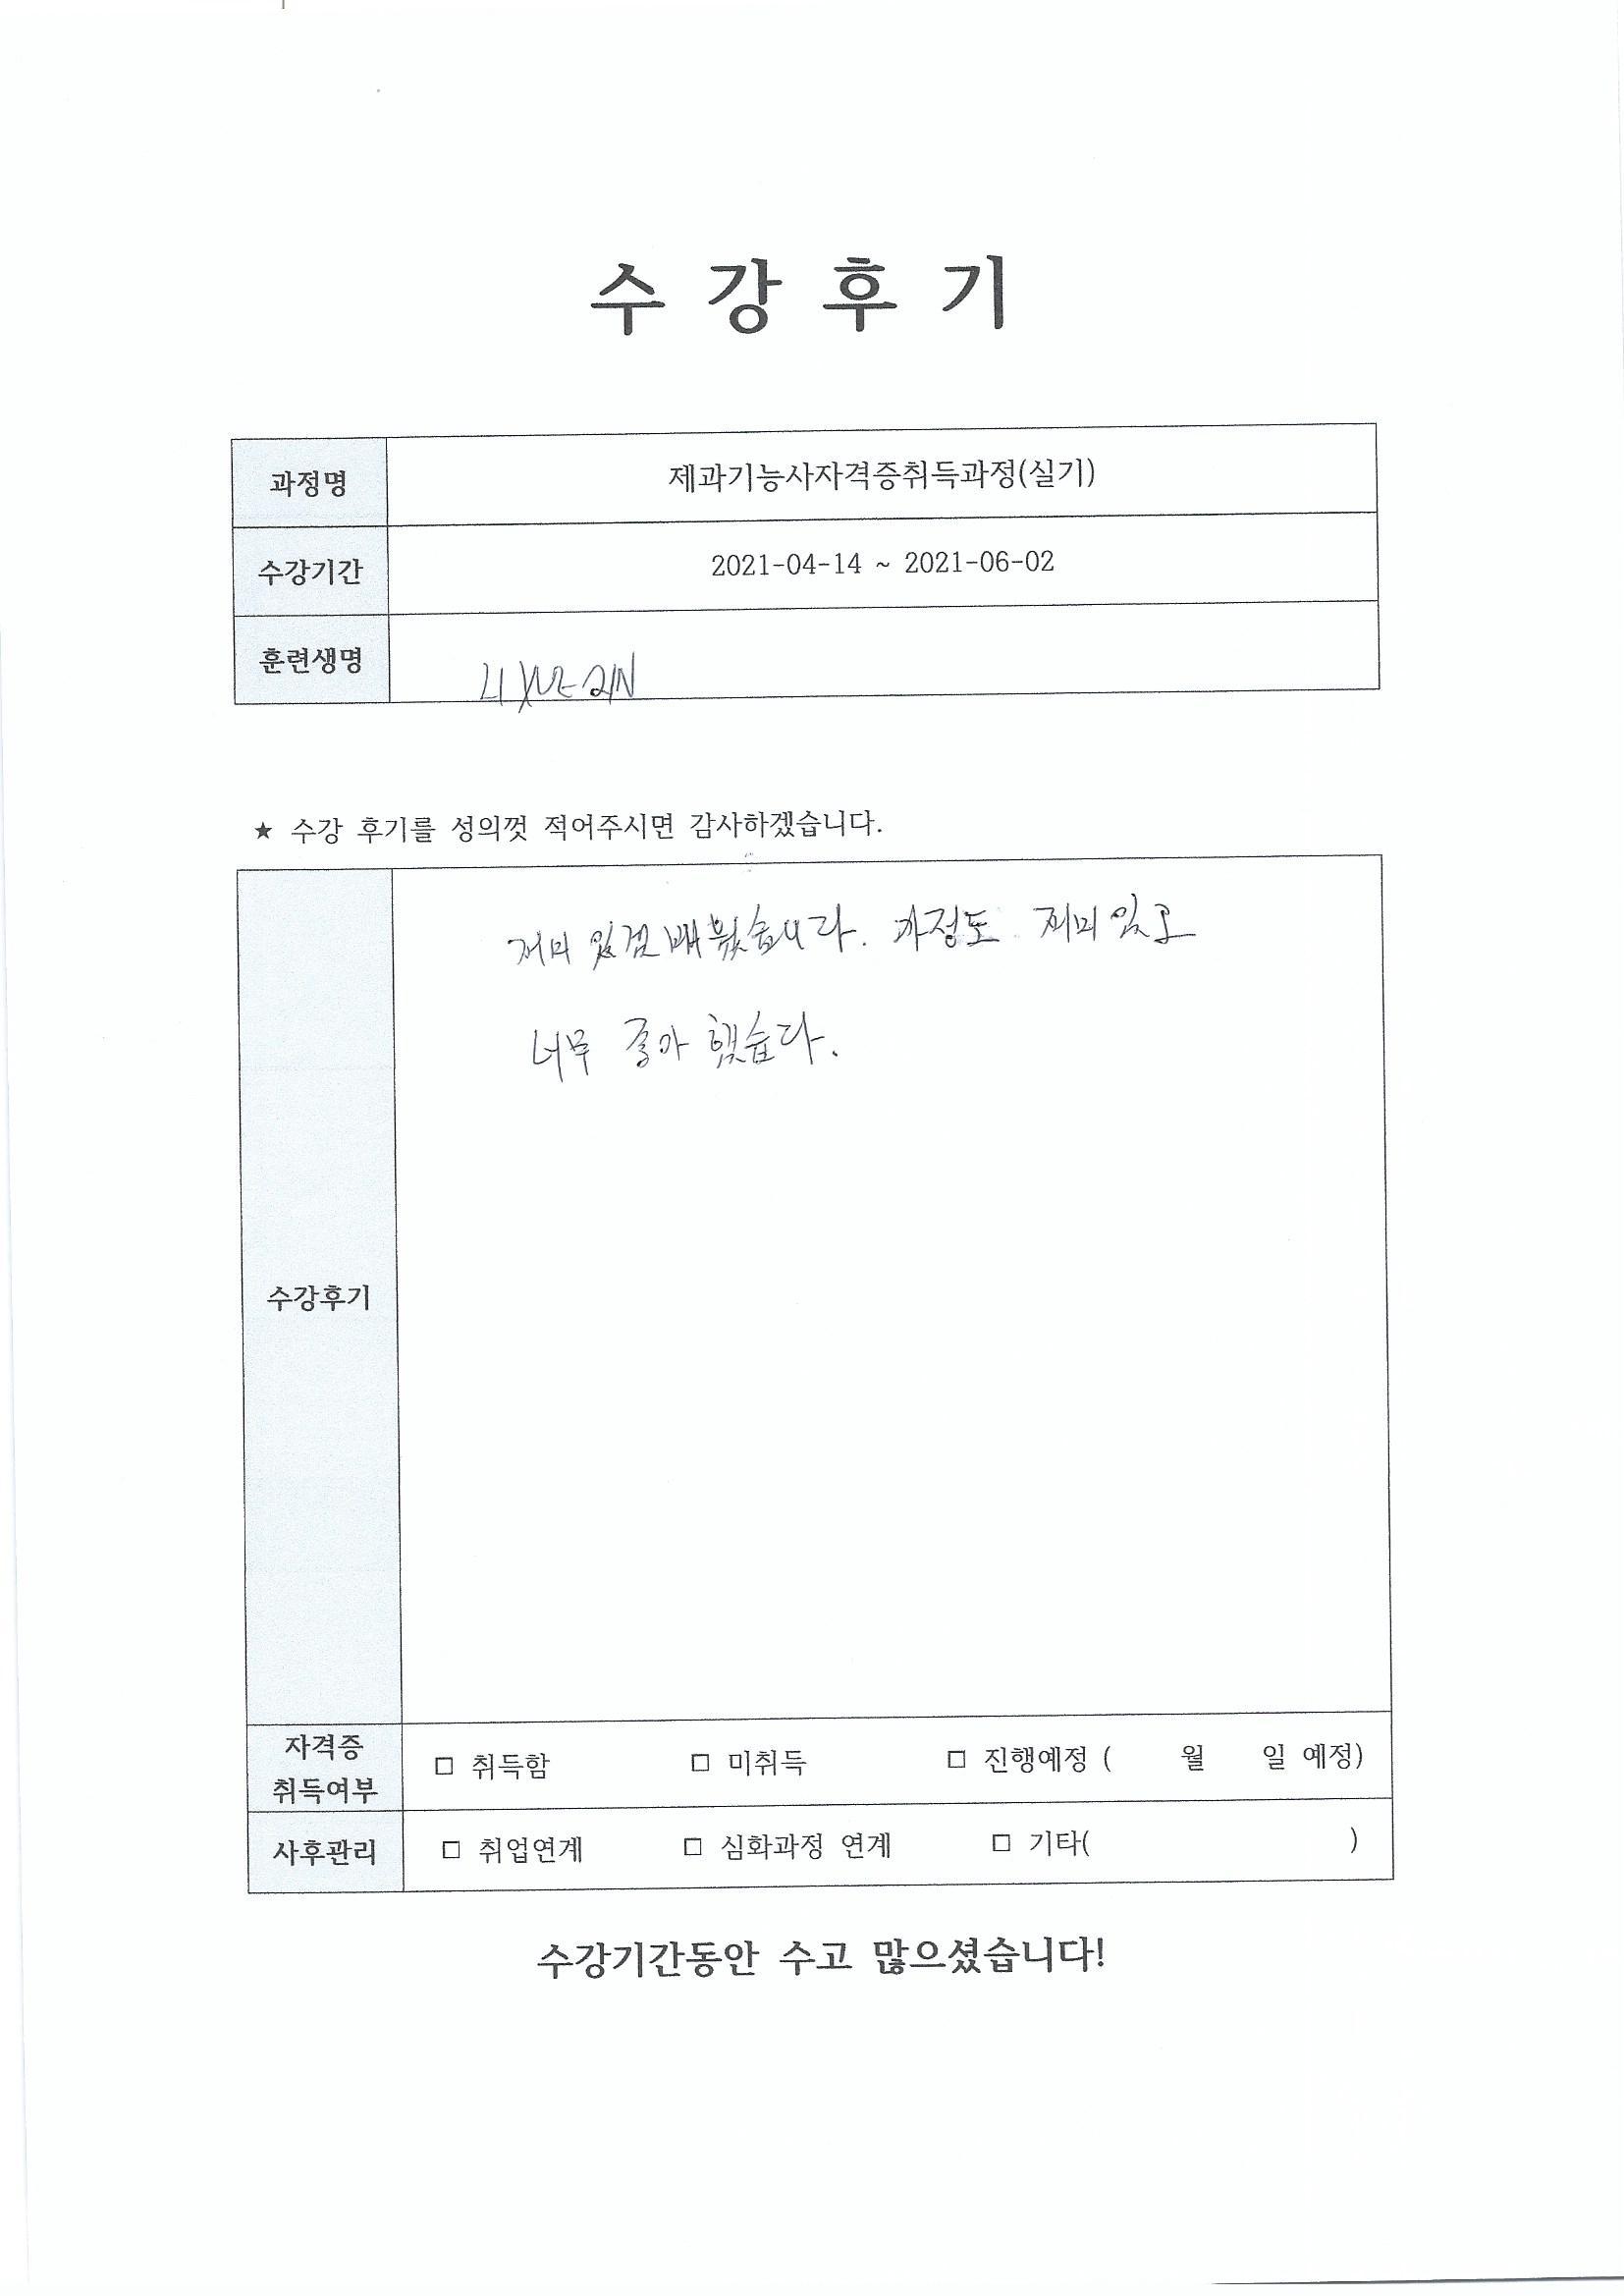 수 강 후 기
과정명 제과기능사자격증취득과정(실기)
수강기간 2021-04-14 ~ 2021-06-02
훈련생명
★ 수강 후기를 성의껏 적어주시면 감사하겠습니다.
재미 있겜 배웠습니다. 과정도 재미있고
너무 좋아 했습다.
수강후기
자격증
취득여부
□ 취득함 □ 미취득 □ 진행예정 ( 월 일 예정)
사후관리 □ 취업연계 □ 심화과정 연계 □ 기타( )
수강기간동안 수고 많으셨습니다!